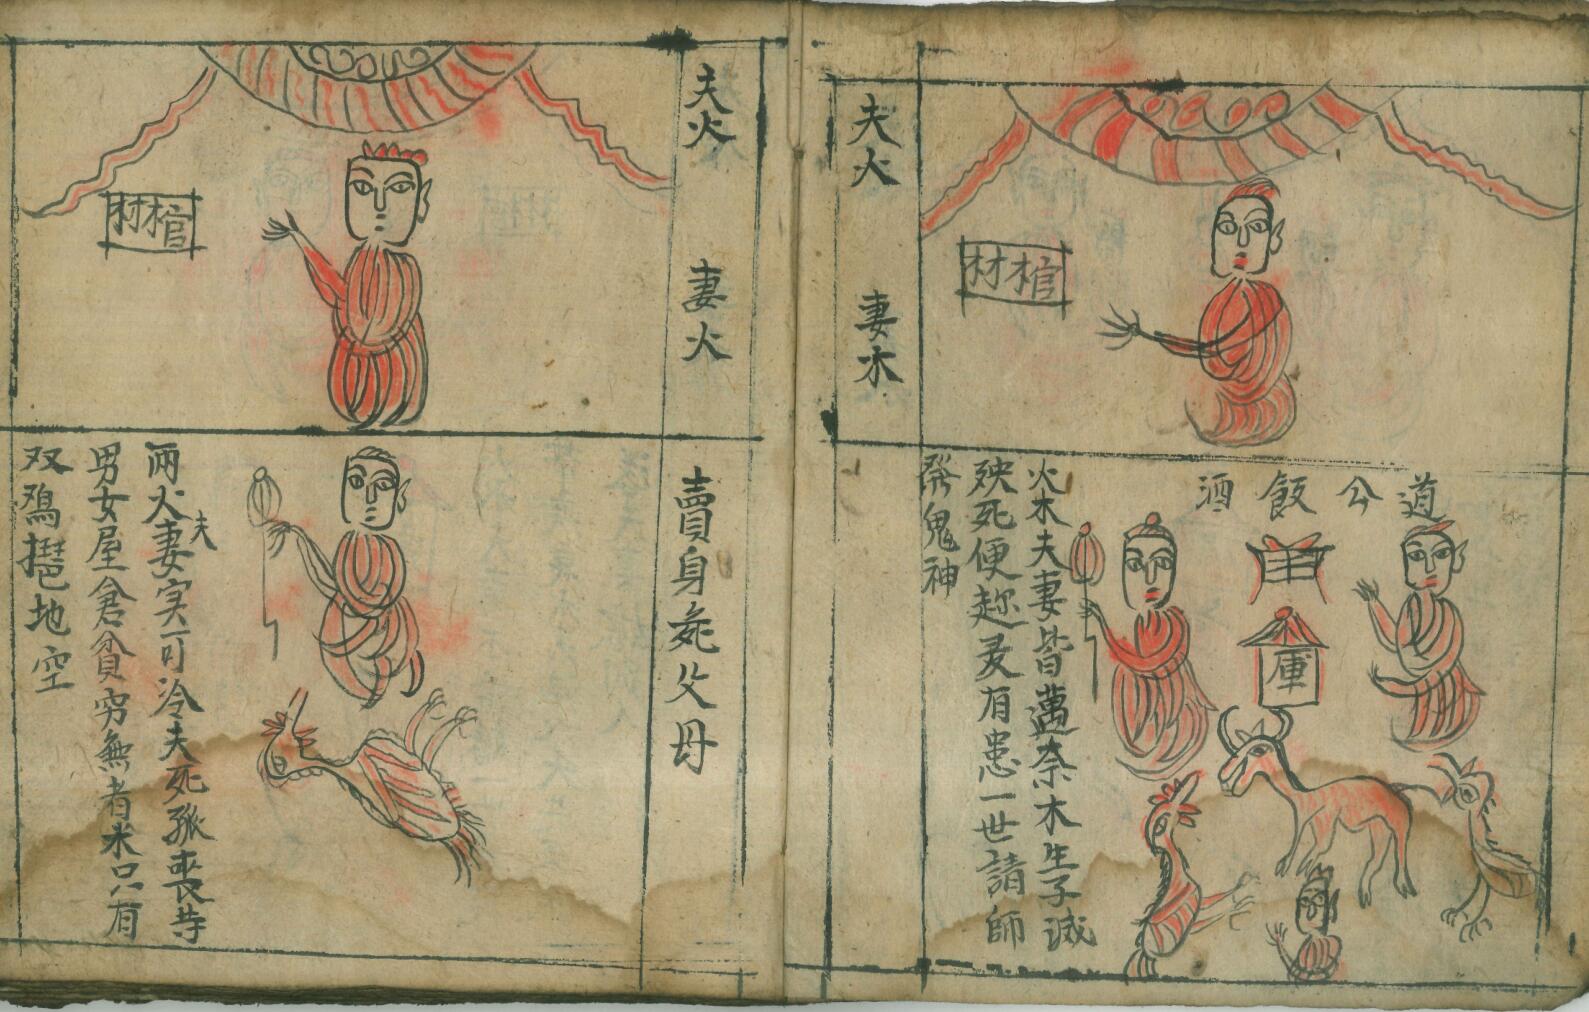 夫火 妻木
棺材
道公飯酒
庫
火木夫妻皆遇奈木生子滅
殃死便趂灵有患一世請師
祭鬼神
夫火 妻火
棺材
賣身葬父母
兩火夫妻实可冷夫死孤丧苦
男女屋倉貧穷無者米只有
双地空